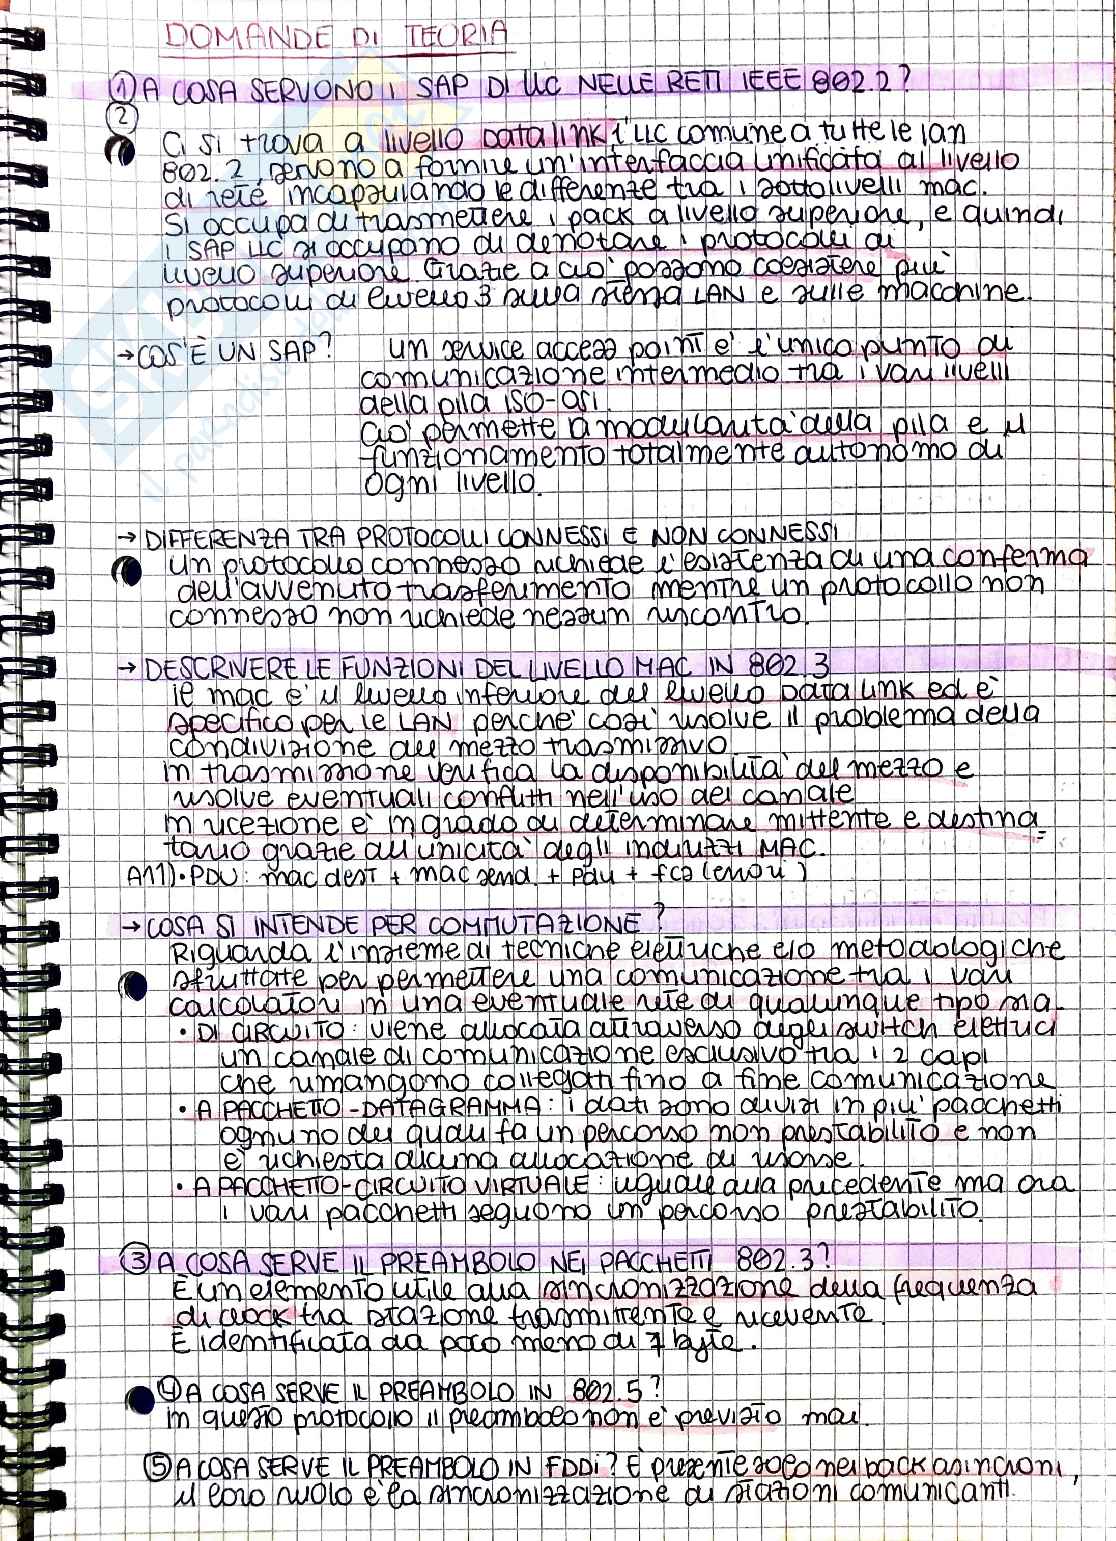 DOMANDE DI TEORIA
① A COSA SERVONO I SAP DI LLC NELLE RETI IEEE 802.2?
②
Ci si trova a livello datalink, l'LLC comune a tutte le lan
802.2, servono a fornire un'interfaccia unificata al livello
di rete incapsulando le differenze tra i sottolivelli mac.
Si occupa di trasmettere i pack a livello superiore, e quindi
i SAP LLC si occupano di denotare i protocolli di
livello superiore. Grazie a ciò possono coesistere più
protocolli di livello 3 sulla stessa LAN e sulle macchine.
→ COS'È UN SAP? un service access point è l'unico punto di
comunicazione intermedio tra i vari livelli
della pila ISO-OSI.
Ciò permette la modularità della pila e il
funzionamento totalmente autonomo di
ogni livello.
→ DIFFERENZA TRA PROTOCOLLI CONNESSI E NON CONNESSI
Un protocollo connesso richiede l'esistenza di una conferma
dell'avvenuto trasferimento mentre un protocollo non
connesso non richiede nessun riscontro.
→ DESCRIVERE LE FUNZIONI DEL LIVELLO MAC IN 802.3
Il mac è il livello inferiore del livello Data Link ed è
specifico per le LAN perché così risolve il problema della
condivizione del mezzo trasmissivo.
in trasmissione verifica la disponibilità del mezzo e
risolve eventuali conflitti nell'uso del canale
in ricezione è in grado di determinare mittente e destina=
tario grazie all'unicità degli indirizzi MAC.
A11) • PDU: mac dest + mac send. + pdu + fcs (errori)
→ COSA SI INTENDE PER COMMUTAZIONE?
Riguarda l'insieme di tecniche elettriche e/o metodologiche
sfruttate per permettere una comunicazione tra i vari
calcolatori in una eventuale rete di qualunque tipo ma
• DI CIRCUITO: viene allocata attraverso degli switch elettrici
un canale di comunicazione esclusivo tra i 2 capi
che rimangono collegati fino a fine comunicazione
• A PACCHETTO-DATAGRAMMA: i dati sono divisi in più pacchetti
ognuno dei quali fa un percorso non prestabilito e non
è richiesta alcuna allocazione di risorse.
• A PACCHETTO-CIRCUITO VIRTUALE: uguale alla precedente ma ora
i vari pacchetti seguono un percorso prestabilito.
③ A COSA SERVE IL PREAMBOLO NEI PACCHETTI 802.3?
È un elemento utile alla sincronizzazione della frequenza
di clock tra stazione trasmittente e ricevente.
È identificata da poco meno di 7 byte.
④ A COSA SERVE IL PREAMBOLO IN 802.5?
in questo protocollo il preambolo non è previsto mai.
⑤ A COSA SERVE IL PREAMBOLO IN FDDi? È presente solo nei pack asincroni,
il loro ruolo è la sincronizzazione di stazioni comunicanti.